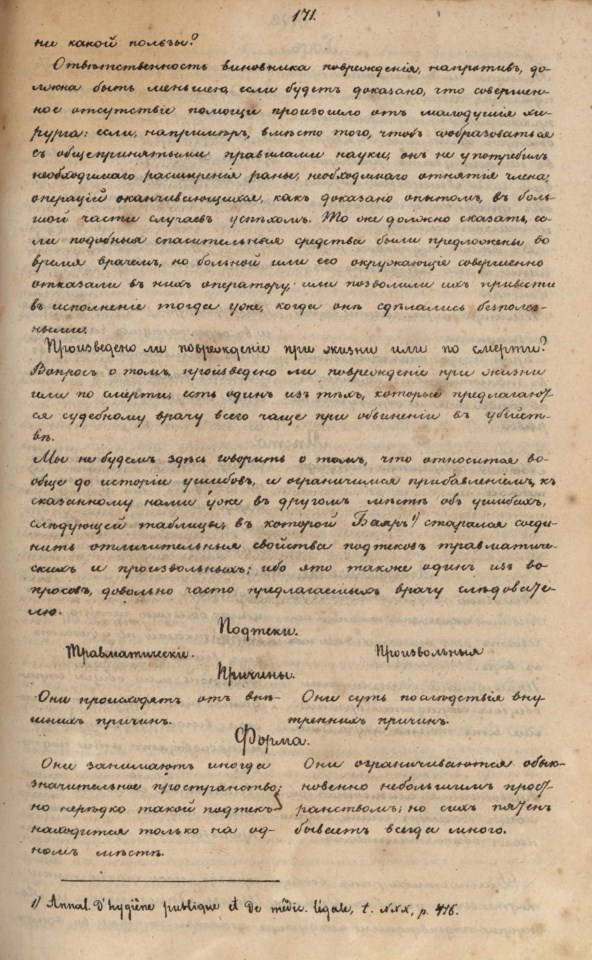 171.
ни какой пользы?
Отвѣтственность виновника поврежденія, напротивъ, до-
лжна быть меньшею, если будетъ доказано, что совершен-
ное отсутствіе помощи произошло отъ малодушія хи-
рурга: если, напримѣръ, вмѣсто того, чтобъ сообразоваться
съ общепринятыми правилами науки, онъ не употребилъ
необходимаго расширенія раны, необходимаго отнятія члена;
операцій оканчивающихся, какъ доказано опытомъ, въ боль-
шой части случаевъ успѣхомъ. То же должно сказать, ес-
ли подобныя спасительныя средства были предложены во
время врачемъ, но больной или его окружающіе совершенно
отказали въ нихъ оператору, или позволили ихъ привести
въ исполненіе тогда уже, когда онѣ сдѣлались безполез-
ными.
Произведено ли поврежденіе при жизни или по смерти?
Вопросъ о томъ, произведено ли поврежденіе при жизни
или по смерти, есть одинъ изъ тѣхъ, которые предлагают-
ся судебному врачу всего чаще при обвиненіи въ убійст-
вѣ.
Мы не будемъ здѣсь говорить о томъ, что относится во-
обще до исторіи ушибовъ, и ограничимся прибавленіемъ, къ
сказанному нами уже въ другомъ мѣстѣ объ ушибахъ,
слѣдующей таблицы, въ которой Баяръ 1) старался соеди-
нить отличительныя свойства подтековъ травматиче-
скихъ и произвольныхъ; ибо это также одинъ изъ во
просовъ, довольно часто предлагаемыхъ врачу слѣдовате-
лю.
Подтеки.
Травматическіе. Произвольныя
Причины.
Они происходятъ отъ внѣ- Они суть послѣдствія вну
шнихъ причинъ. треннихъ причинъ.
Форма.
Они занимаютъ иногда Они ограничиваются обык-
значительное пространство; новенно небольшимъ прост
но нерѣдко такой подтекъ ранствомъ; но сихъ пятенъ
находится только на од- бываетъ всегда много.
номъ мѣстѣ.
1) Annal. d'hygiène publique et de médic. légale, t. XXX, p. 416.